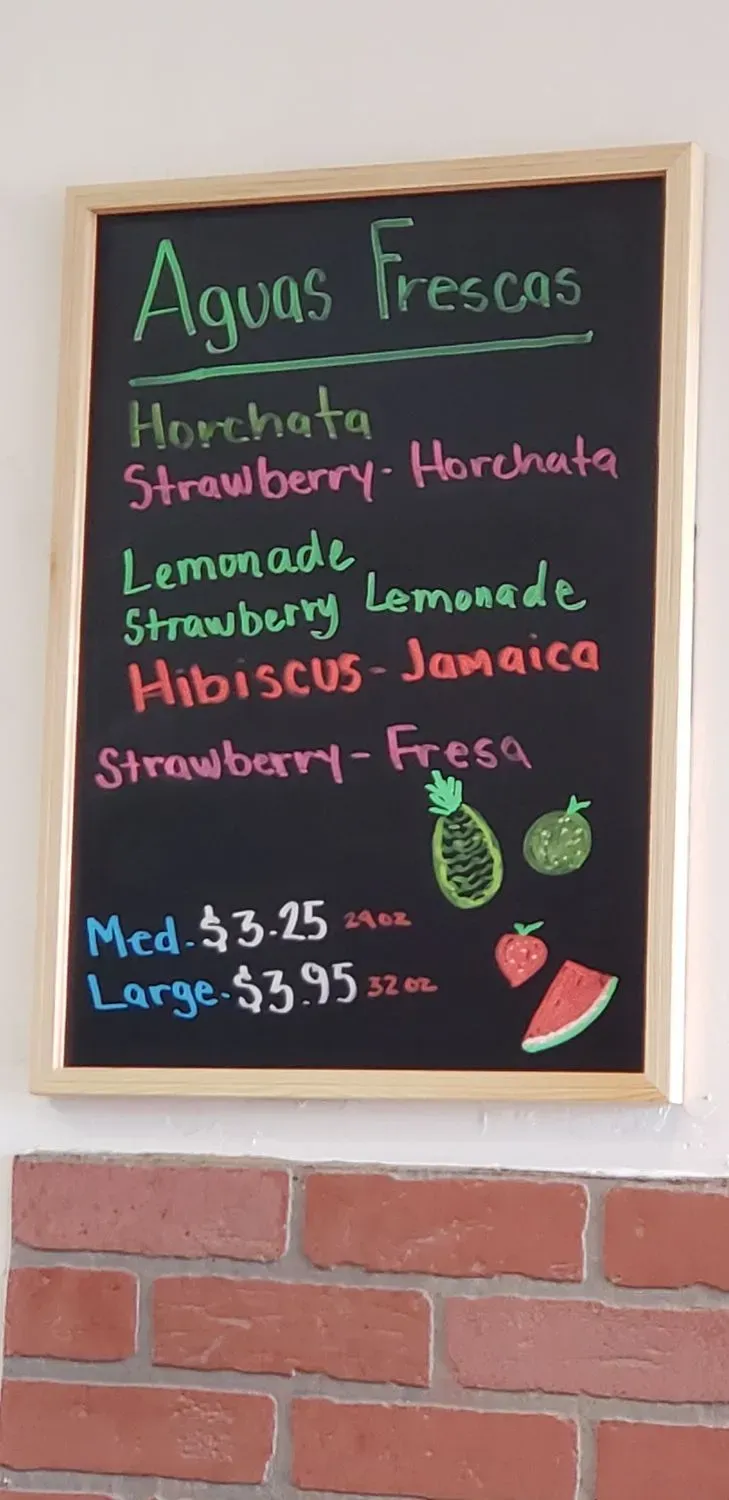 Aguas Frescas
Horchata
Strawberry - Horchata
Lemonade
Strawberry Lemonade
Hibiscus - Jamaica
Strawberry - Fresa
Med. $3.25 24oz
Large - $3.95 32oz